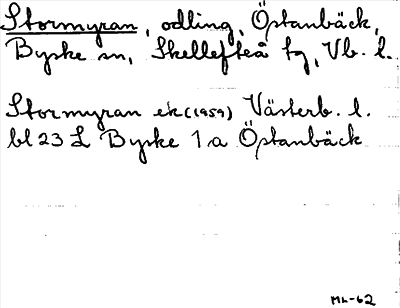 Stormyran, odling, Östanbäck,
Byske sn, Skellefteå tg, Vb. l.
Stormyran ek (1959) Västerb. l.
bl 23 L Byske 1 a Östanbäck
ML-62